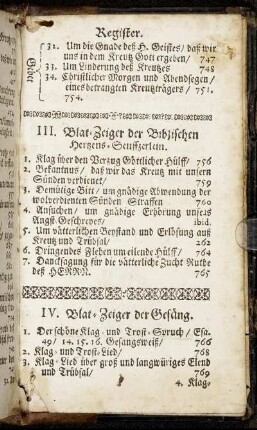 Register.
32. Um die Gnade deß H. Geistes/ daß wir
uns in dem Kreutz Gott ergeben/ 747
33. Um Linderung deß Kreutzes 748
34. Christlicher Morgen und Abendsegen/
eines betrangten Kreutzträgers/ 751.
754.
III. Blat-Zeiger der Biblischen
Hertzens-Seufftzerlein.
1. Klag über den Verzug Göttlicher Hülff/ 756
2. Bekantnus/ daß wir das Kreutz mit unsern
Sünden verdienet/ 759
3. Demütige Bitt/ um gnädige Abwendung der
wolverdienten Sünden Straffen 760
4. Ansuchen/ um gnädige Erhörung unsers
Angst-Geschreyes/ ibid.
5. Um vätterlichen Beystand und Erlösung auß
Kreutz und Trübsal/ 262
6. Dringendes Flehen um eilende Hülff/ 764
7. Dancksagung für die vätterliche Zucht-Ruthe
deß HERRN. 765
IV. Blat-Zeiger der Gesäng.
1. Der schöne Klag- und Trost-Spruch/ Esa.
49/ 14. 15. 16. Gesangsweiß/ 766
2. Klag- und Trost-Lied/ 768
3. Klag-Lied über groß und langwüriges Elend
und Trübsal/ 769
4. Klag-